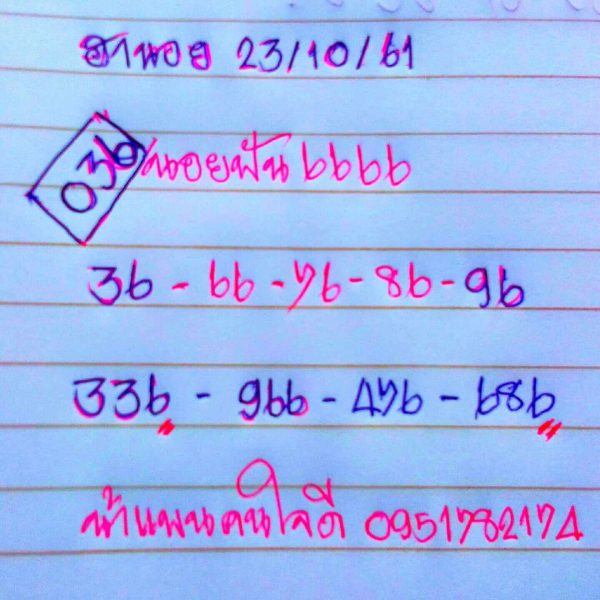 ฮานอย 23/10/61
036 นอยฟัน 6666
36 - 66 - 76 - 86 - 96
336 - 966 - 476 - 686
น้าแพนคนใจดี 0951782174